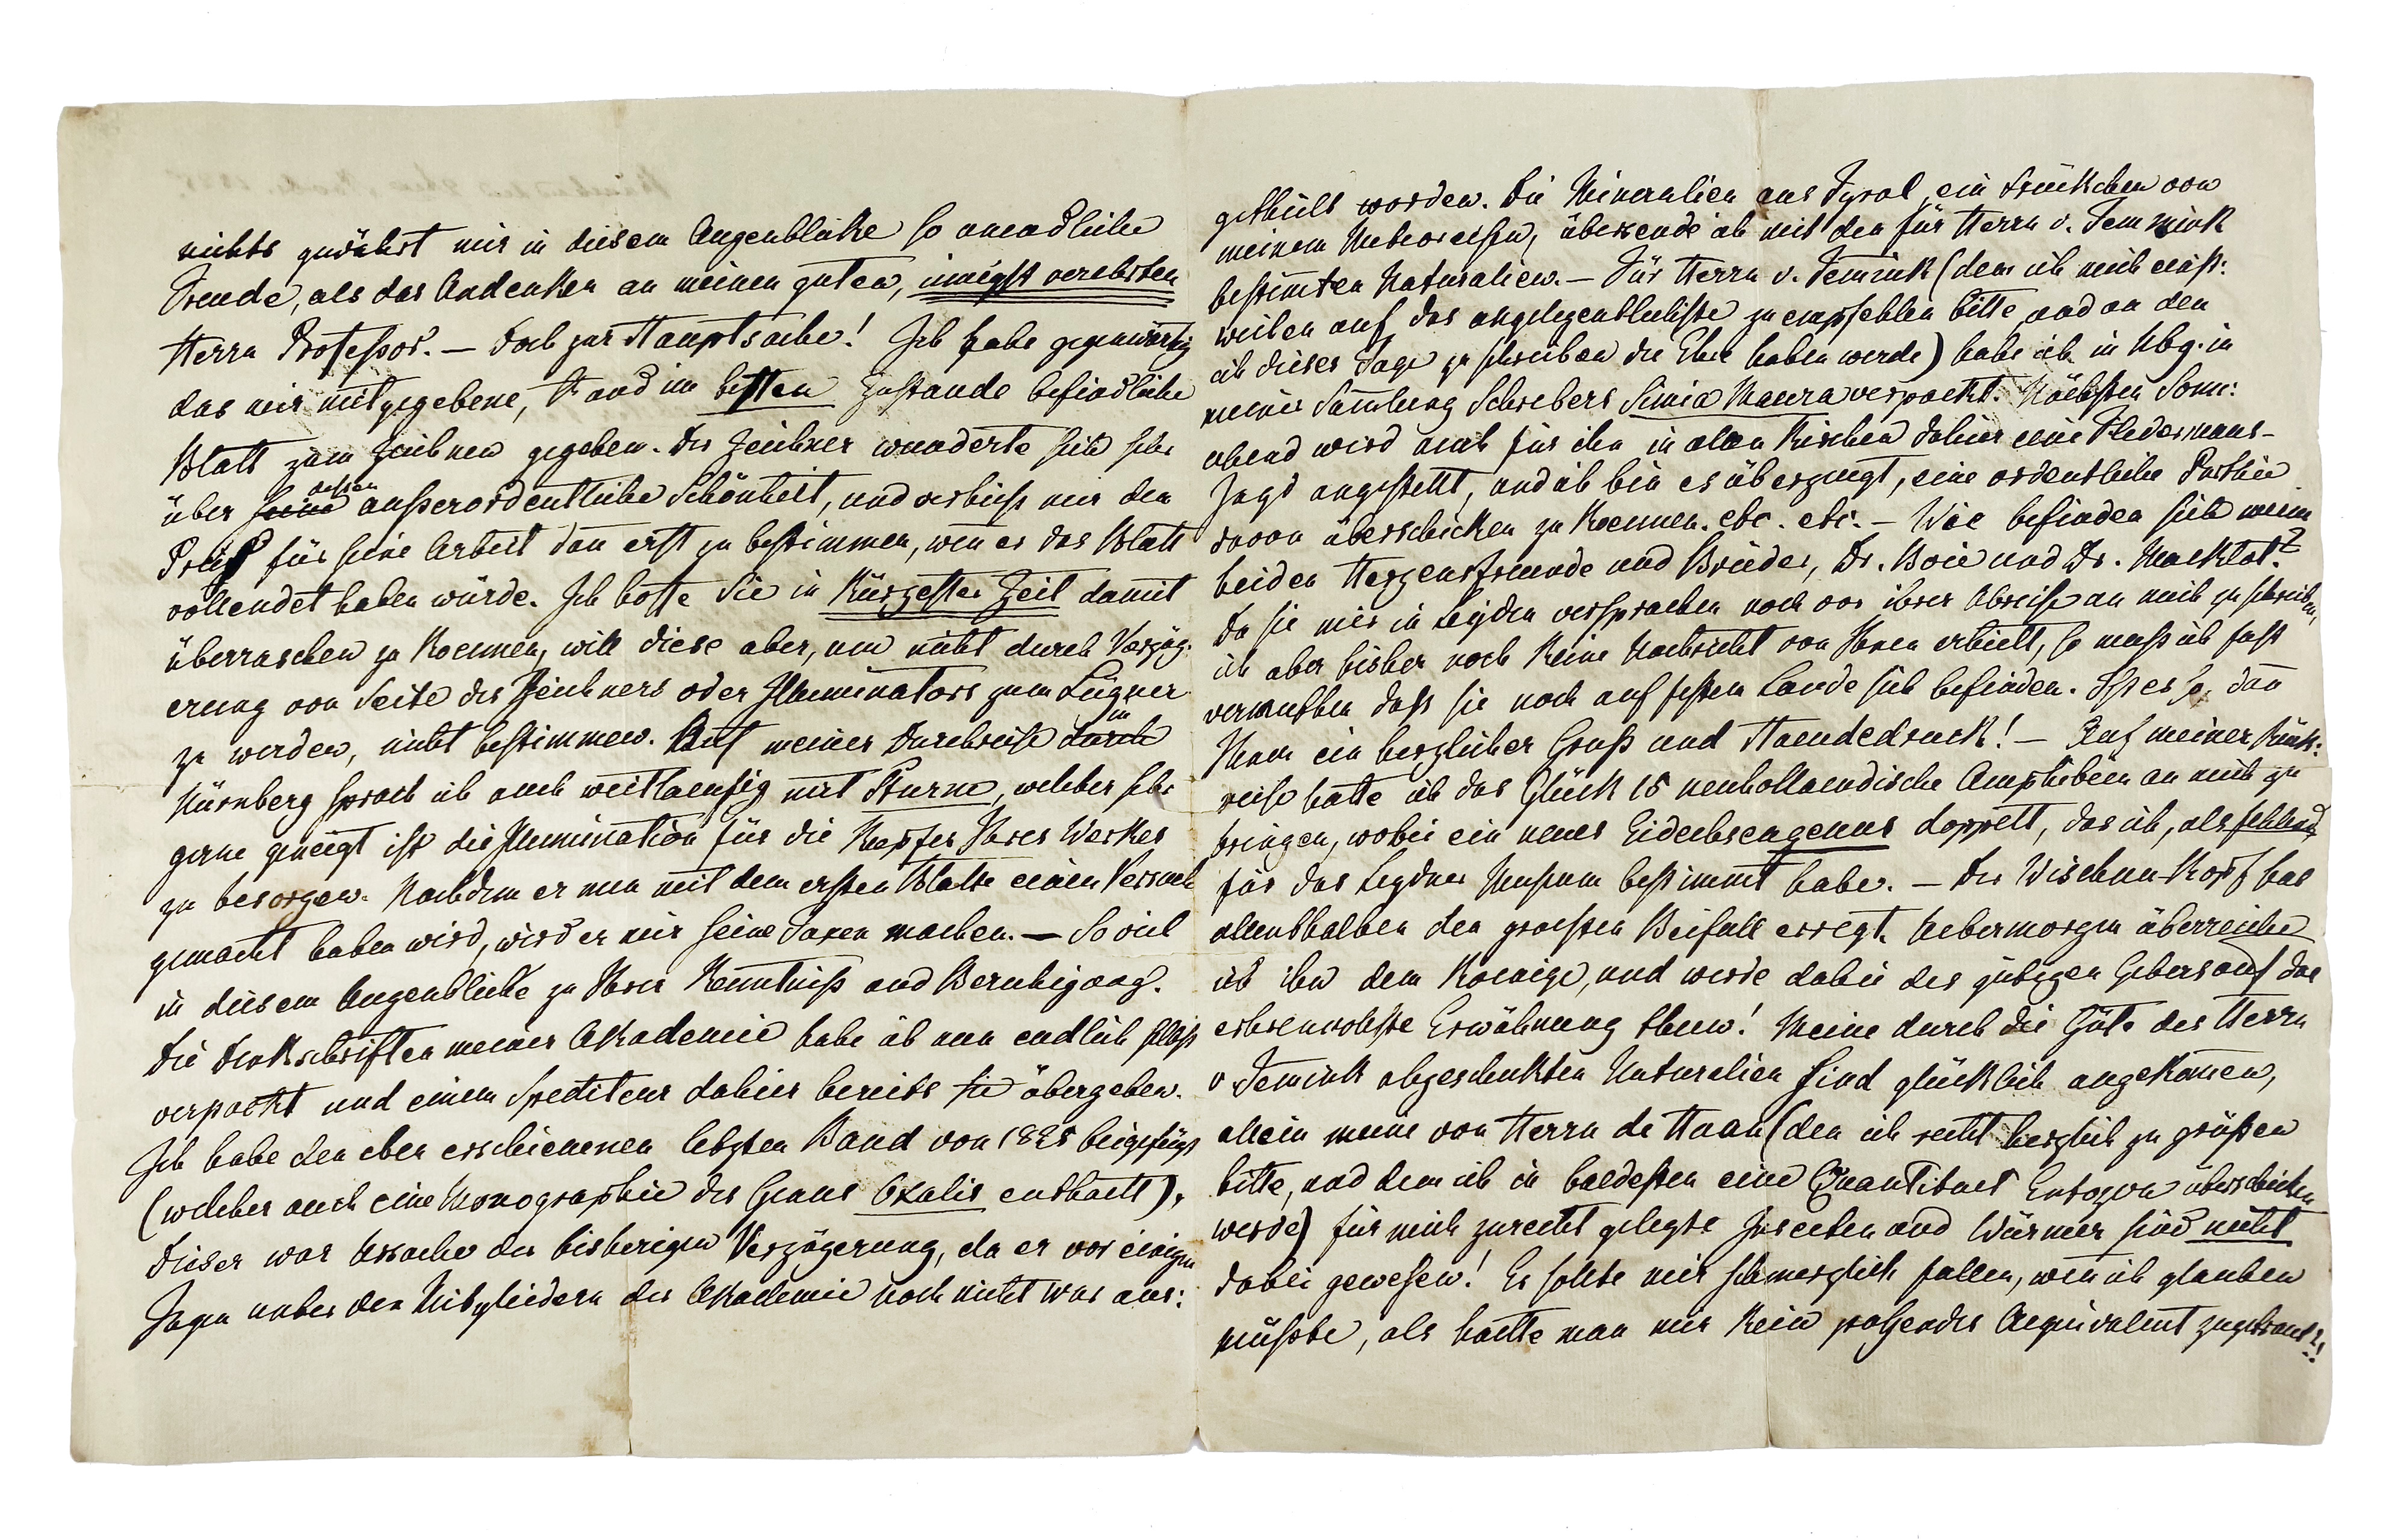 nichts gewährt mir in diesem Augenblicke so unendliche
Freude, als das Andenken an meinen guten, innigst verehrten
Herrn Professor. — Doch zur Hauptsache! Ich habe gegenwärtig
das mir mitgegebene, und im besten Zustande befindliche
Blatt zum Zeichnen gegeben. Der Zeichner wunderte sich sehr
über dessen außerordentliche Schönheit, und verhieß mir den
Preiß für seine Arbeit dañ erst zu bestimmen, weñ er das Blatt
vollendet haben würde. Ich hoffe Sie in kürzester Zeit damit
überraschen zu koennen, will diese aber, um nicht durch Verzög:
erung von Seite des Zeichners oder Illuminators zum Lügner
zu werden, nicht bestimmen. Auf meiner Durchreise in
Nürnberg sprach ich auch weitlaeufig mit Sturm, welcher sehr
gerne geneigt ist die Illumination für die Kupfer Ihres Werkes
zu besorgen. Nachdem er nun mit dem ersten Blatte einen Versuch
gemacht haben wird, wird er mir seine Taxen machen. — So viel
in diesem Augenblicke zu Ihrer Kenntniß und Beruhigung.
Die Denkschriften meiner Akademie habe ich nun endlich selbst
verpackt und einem Spediteur dahier bereits übergeben.
Ich habe den eben erschienenen letzten Band von 1825 beigefügt
(welcher auch eine Monographie des Genus Oxalis enthaelt),
dieser war Ursache der bisherigen Verzögerung, da er vor einigen
Tagen unter den Mitgliedern der Akademie noch nicht war aus:
getheilt worden. Die Mineralien aus Tyrol, ein Stückchen von
meinem Meteoreisen, übersende ich mit den für Herrn v. Temmink
bestimten Naturalien. — Für Herrn v. Temink (dem ich mich einst:
weilen auf das angelegentlichste zu empfehlen bitte und an den
ich dieser Tage zu schreiben die Ehre haben werde) habe ich in Nbg. in
meiner Samlung Schrebers Simia Maura verpackt. Nächsten Sonn:
abend wird auch für ihn in allen Kirchen dahier eine Fledermaus-
Jagd angestellt, und ich bin es überzeugt, eine ordentliche Parthie
davon überschicken zu koennen. etc. etc. — Wie befinden sich meine
beiden Herzensfreunde und Brüder, Dr. Boie und Dr. Macklot?
Da sie mir in Leyden versprachen noch vor ihrer Abreise an mich zu schreiben,
ich aber bisher noch keine Nachricht von Ihnen erhielt, so muß ich fast
vermuthen daß sie noch auf festem Lande sich befinden. Ist es so, dañ
Ihnen ein herzlicher Gruß und Haendedruck! — Auf meiner Rück:
reise hatte ich das Glück 15 neuhollaendische Amphibien an mich zu
bringen, wobei ein neues Eidechsengenus doppelt, das ich, als fehlend
für das Leydner Museum bestimmt habe. — Der Wischnu-Kopf hat
allenthalben den groeßten Beifall erregt. Uebermorgen überreiche
ich ihn dem Koenige, und werde dabei des gütigen Gebers auf das
ehrenvollste Erwähnung thun! Meine durch die Güte des Herrn
v. Temink abgeschickten Naturalien sind glücklich angekomen,
allein meine von Herrn de Haan (den ich recht herzlich zu grüßen
bitte, und dem ich in baldesten eine Quantitaet Entozoen überschicken
werde) für mich zurecht gelegte Insecten und Würmer sind nicht
dabei gewesen! Es sollte mir schmerzlich fallen, weñ ich glauben
müßte, als haette man mir kein passendes Aequivalent zugetraut?!